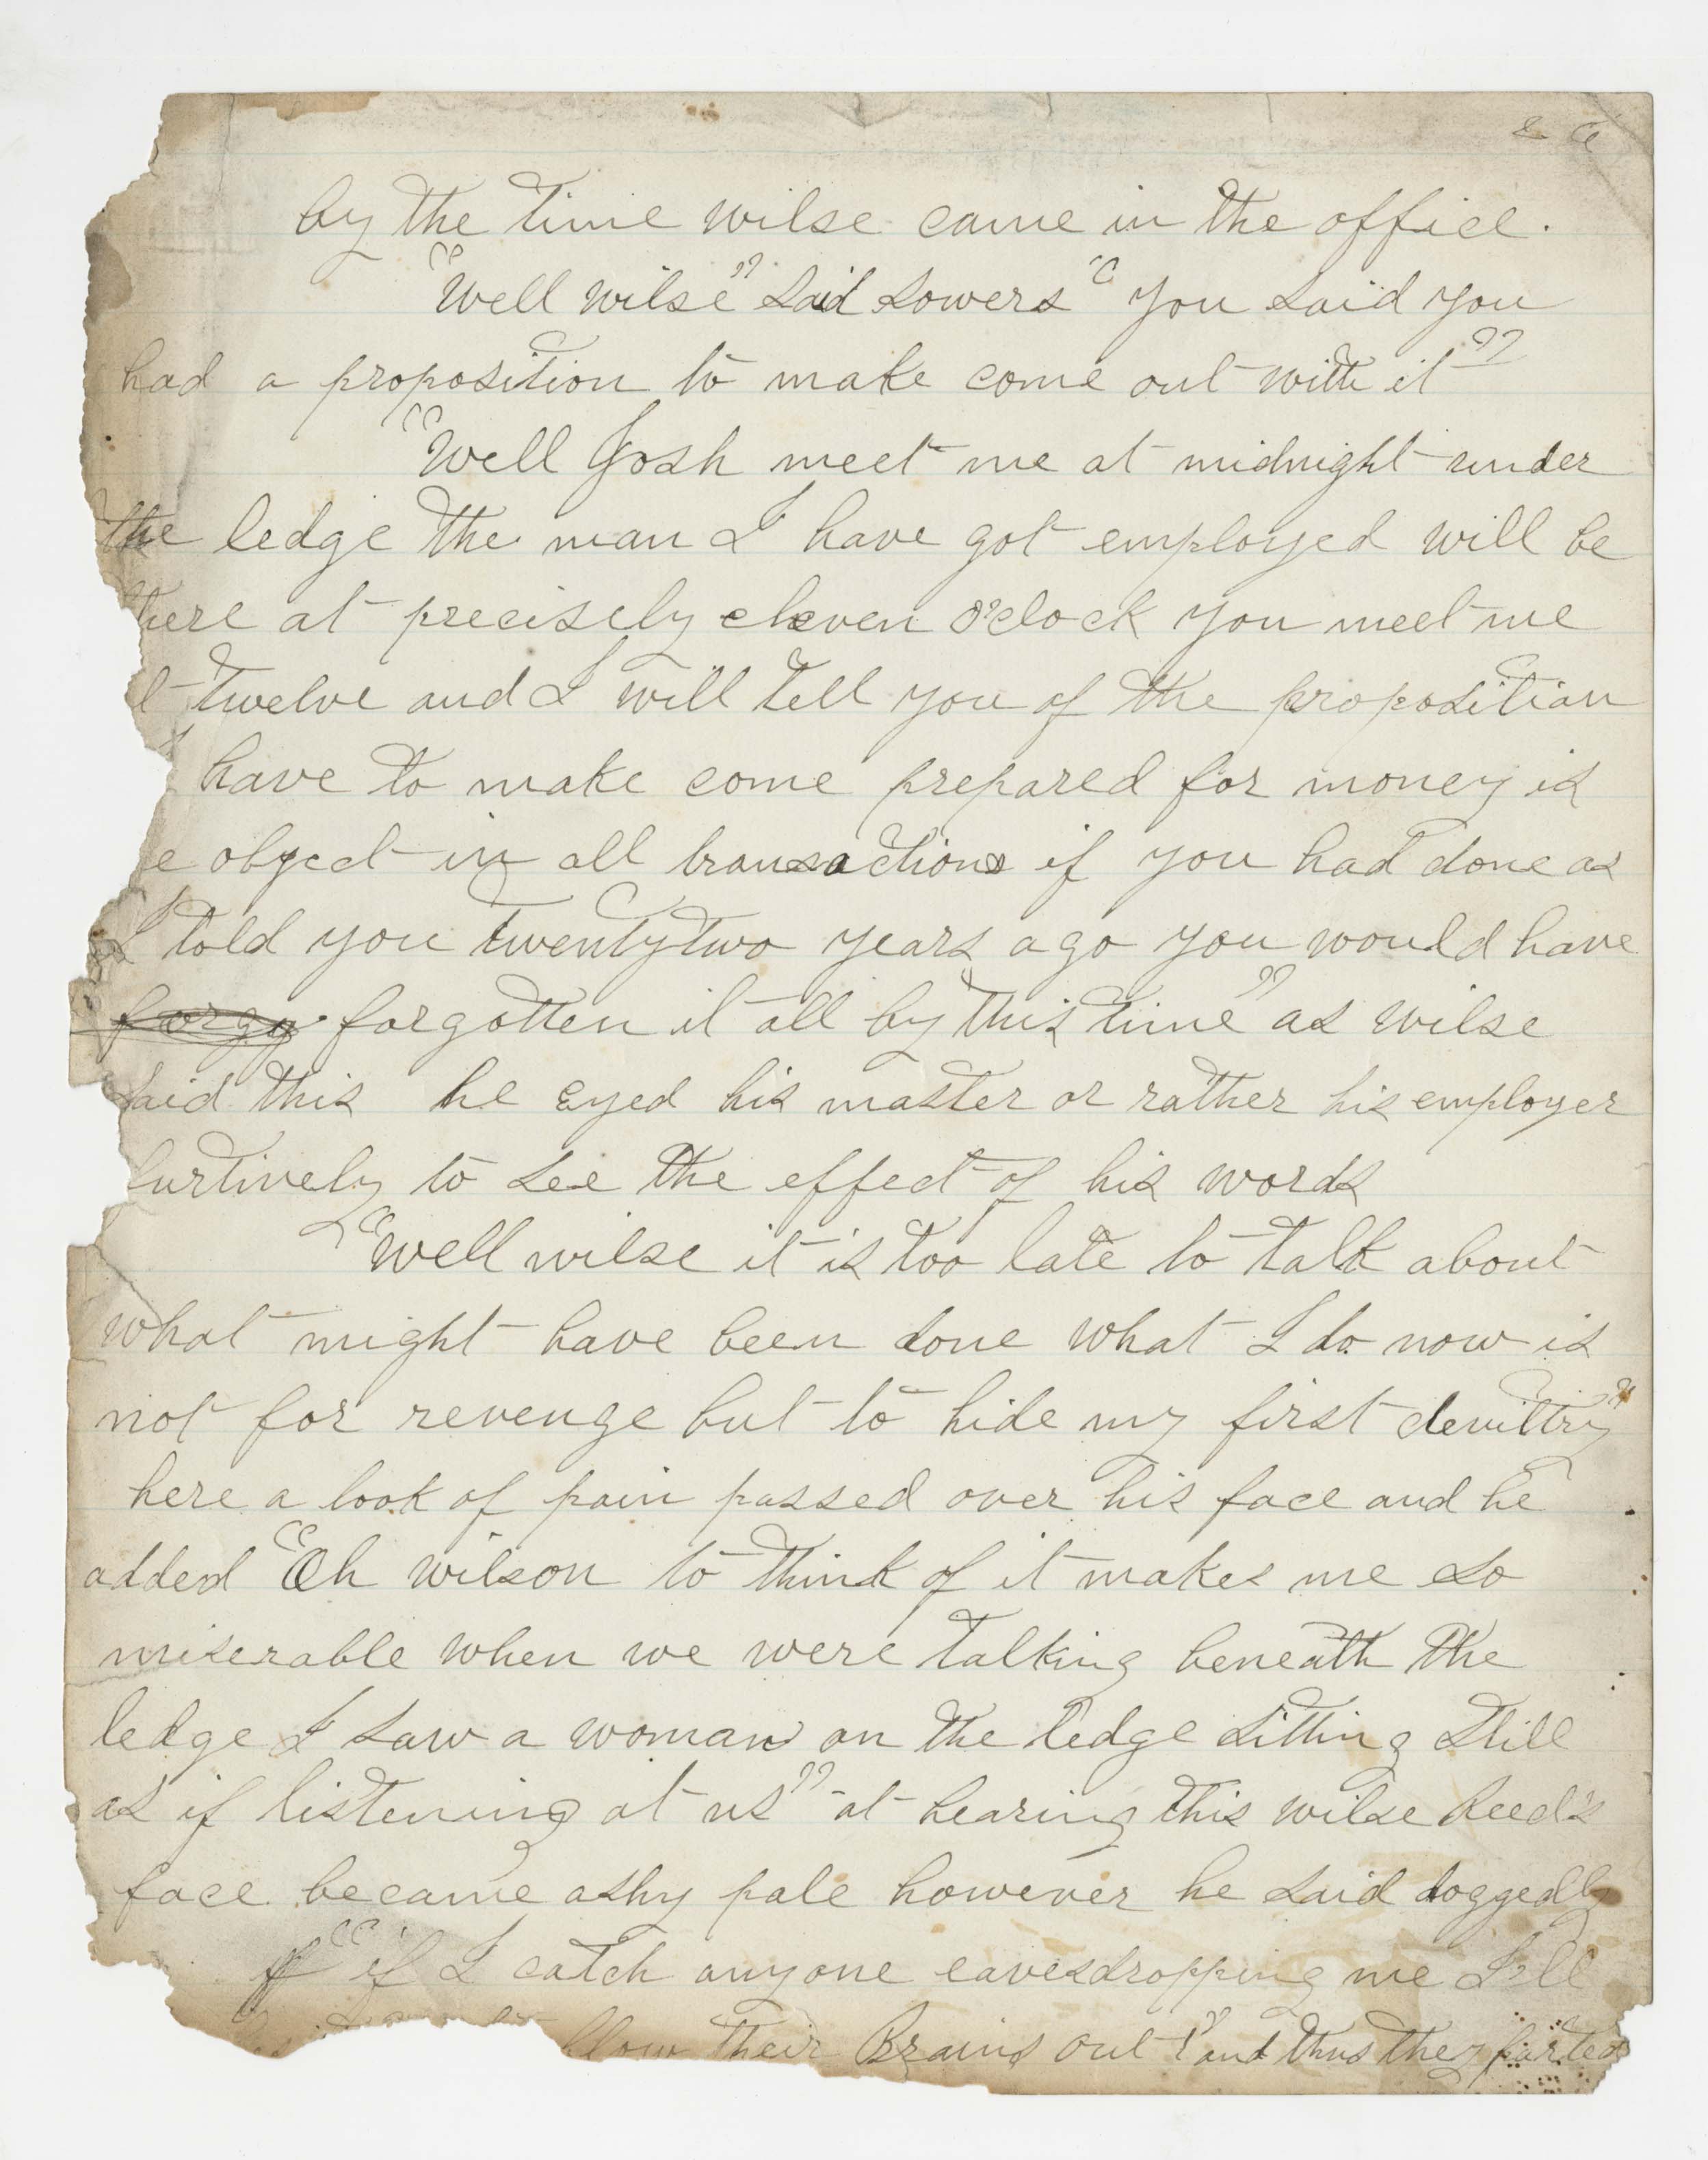 by the time wilse came in the office.
"Well wilse" said sowers "you said you
had a proposition to make come out with it"
"Well Josh meet me at midnight under
the ledge the man I have got employed will be
here at precisely eleven o'clock you meet me
t twelve and I will tell you of the proposition
have to make come prepared for money is
e object in all transactions if you had done as
I told you twentytwo years ago you would have
forgo forgotten it all by this time" as wilse
said this he eyed his master or rather his employer
furtively to see the effect of his words
"Well wilse it is too late to talk about
what might have been done what I do now is
not for revenge but to hide my first deviltry"
here a look of pain passed over his face and he
added "Oh wilson to think of it makes me so
miserable when we were talking beneath the
ledge I saw a woman on the ledge sitting still
as if listening at us" at hearing this wilse Reed's
face became ashy pale however he said doggedly
"if I catch anyone eavesdropping me I'll
blow their Brains out!" and thus they parted